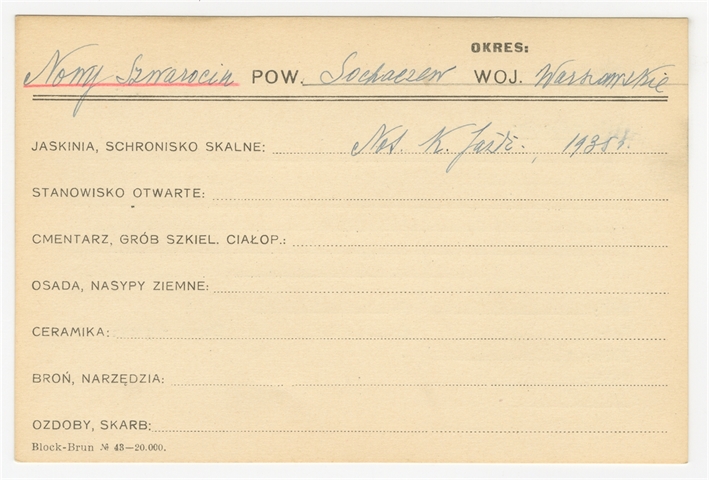 OKRES:
Nowy Szwarocin POW. Sochaczew WOJ. Warszawskie
JASKINIA, SCHRONISKO SKALNE: Not. K. 1938 r.
STANOWISKO OTWARTE:
CMENTARZ, GRÓB SZKIEL. CIAŁOP.:
OSADA, NASYPY ZIEMNE:
CERAMIKA:
BROŃ, NARZĘDZIA:
OZDOBY, SKARB:
Block-Brun № 43—20.000.